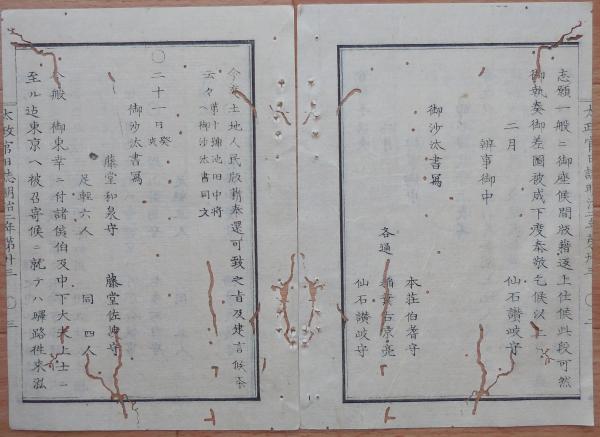 志願一般ニ御座候間版籍返上仕候此段可然
御執奏御差圖被成下度奉敬乞候以上
二月
仙石讃岐守
辨事御中
御沙汰書寫
本莊伯耆守
各通
稻葉右京亮
仙石讃岐守
今般土地人民版籍奉還可致之旨及建言候条
云々
第十號池田中將
ヘ御沙汰書同文
〇二十一日癸亥
御沙汰書寫
藤堂和泉守
足輕六人
藤堂佐渡守
同四人
今般御東幸ニ付諸侯伯及中下大夫上士ニ
至ル迠東京ヘ被召寄候ニ就テハ驛路徃来泓
太政官日誌明治二年第廾三
〇三